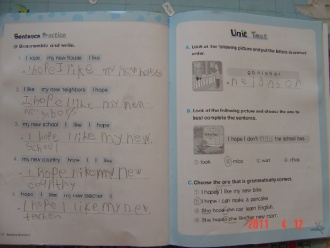 Sentence Practice
Unscramble and write.
1. I hope my new house I like
I hope I like my new house
2. I like my new neighbors I hope
I hope I like my new
neighbors
3. my new school I like I hope
I hope I like my new
School
4. my new country hope I I like
I hope I like my new
country
5. hope I I like my new teacher
I hope I like my new
teacher
Unit Test
A. Look at the following picture and put the letters in correct
order.
B. Look at the following picture and choose the one to
best complete the sentence.
I hope I don't miss the school bus.
① took
② miss
③ visit
④ stay
C. Choose the one that is grammatically correct.
① I hopely I like my new bike.
② I hope I can make a pancake.
③ She hope she can learn English.
④ She hope she like her new mom.
2011 4 12